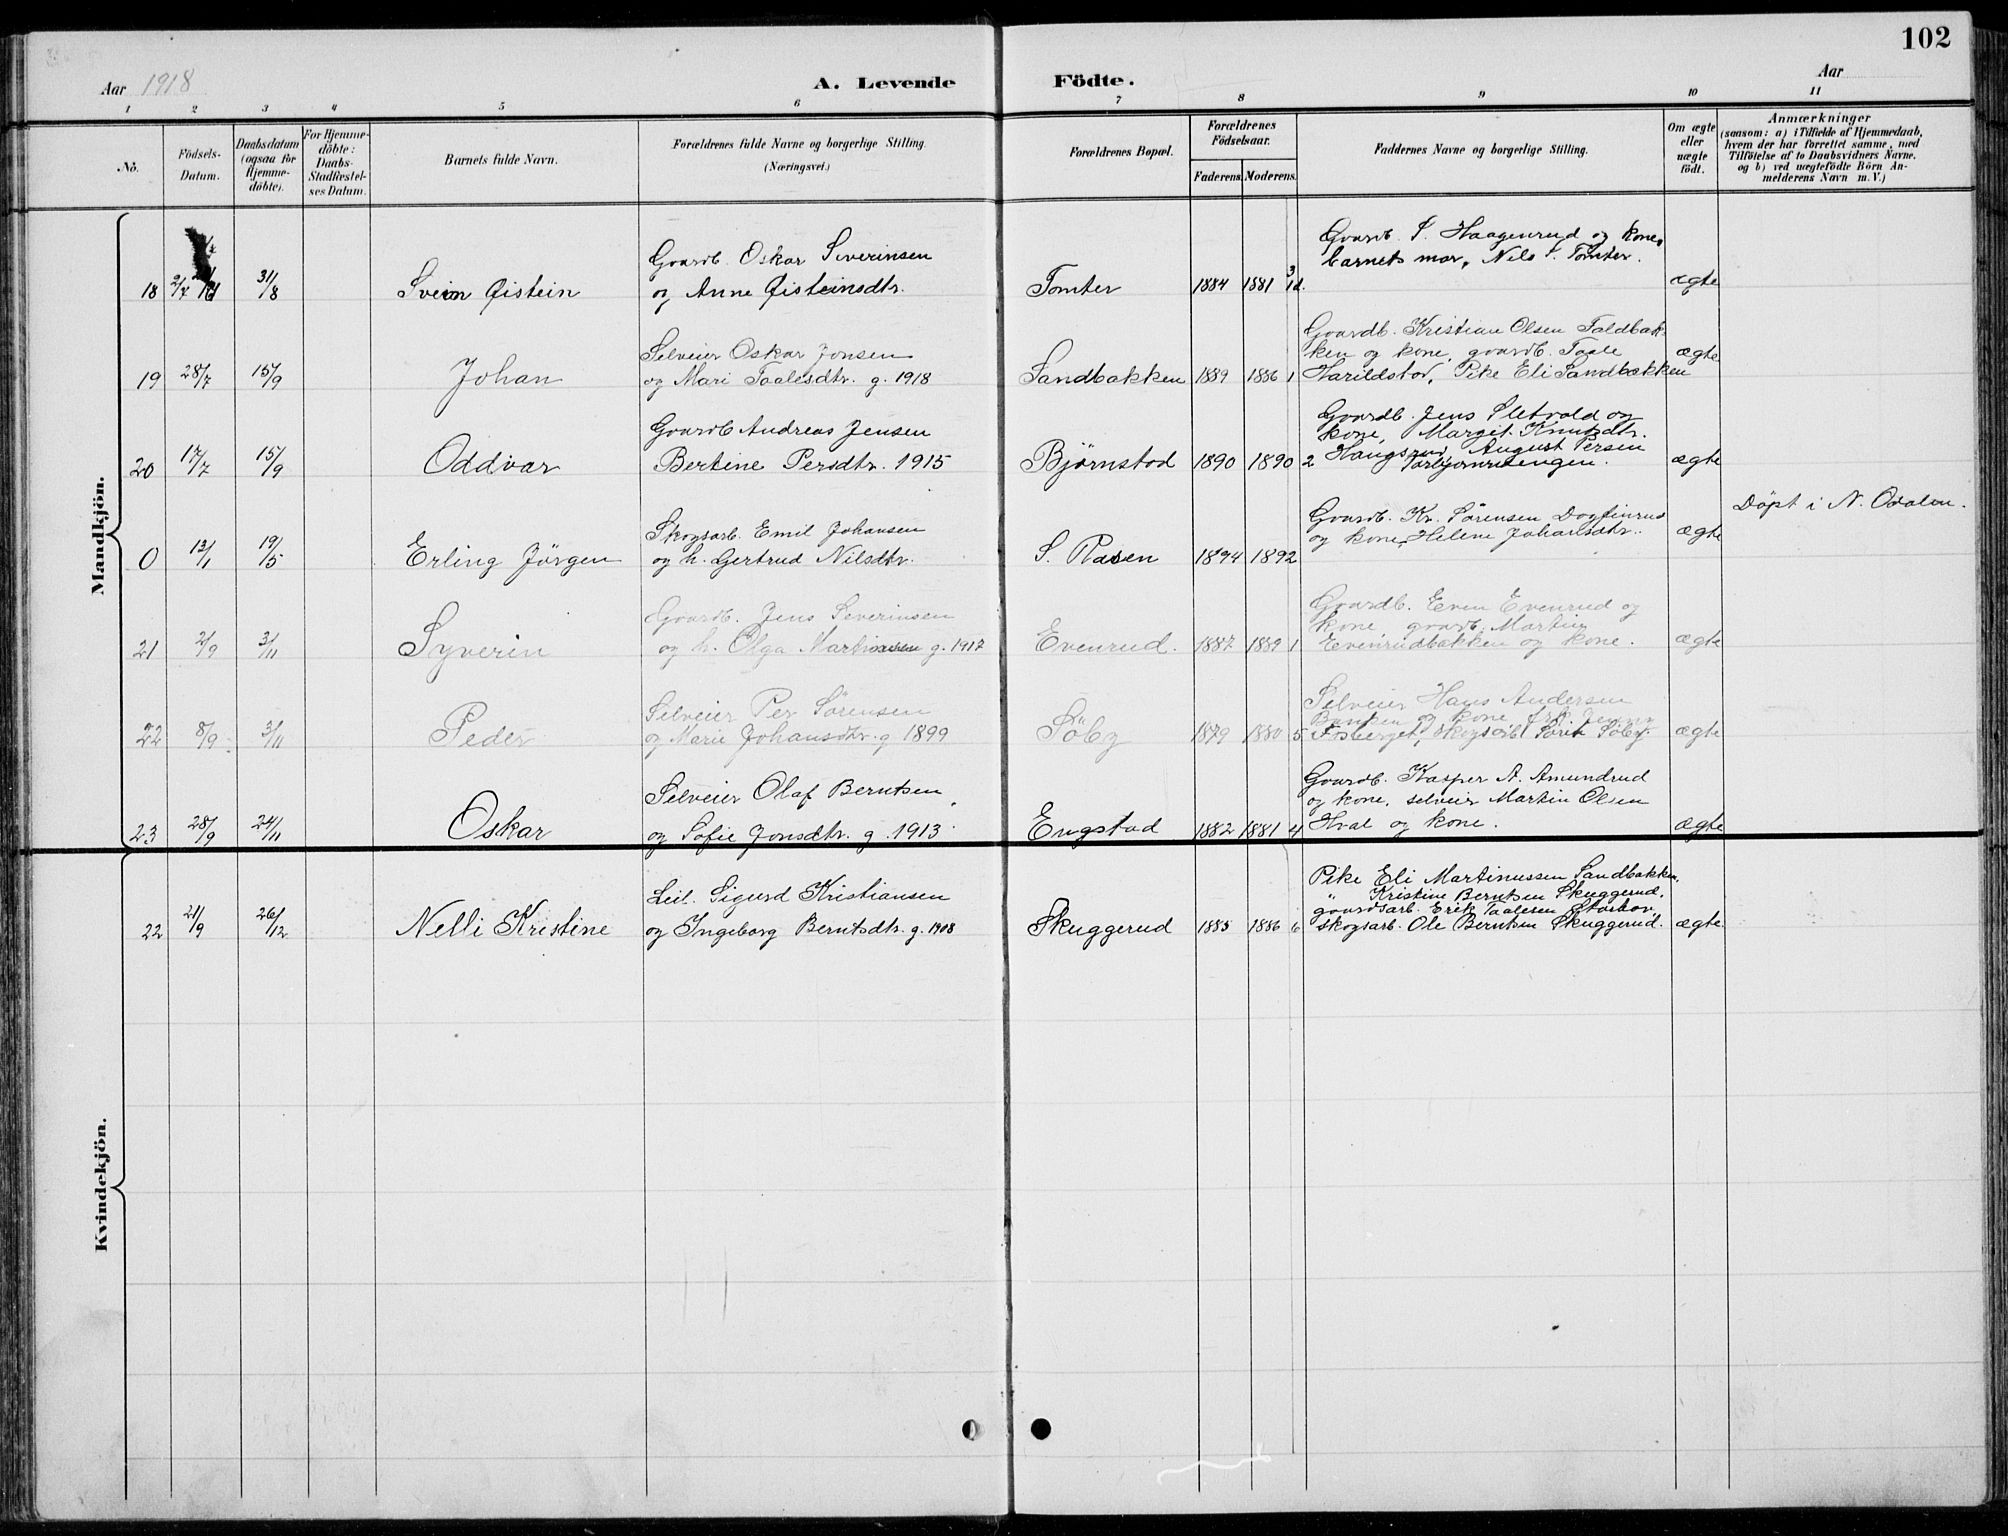 102
Aar 1918
A. Levende Födte.
Aar
1 2 3 4 5 6 7 8 9 10 11
No.
Födsels-
Datum.
Daabsdatum
(ogsaa for
Hjemme-
döbte).
For Hjemme-
döbte:
Daabs-
Stadfæstel-
ses Datum.
Barnets fulde Navn.
Forældrenes fulde Navne og borgerlige Stilling.
(Næringsvei.)
Forældrenes Bopæl.
Forældrenes
Födselsaar.
Faderens. Moderens.
Faddernes Navne og borgerlige Stilling.
Om ægte
eller
uægte
födt.
Anmærkninger
(saasom: a) i Tilfælde af Hjemmedaab,
hvem der har forrettet samme, med
Tilföielse af to Daabsvidners Navne,
og b) ved uægtefödte Börn An-
melderens Navn m. V.)
Mandkjön.
Gaardb. Oskar Siverinsen
Gaardb. S. Haagenrud og kone,
barnets mor, Nils S. Tomter.
18 2/7 31/8 Svein Øistein og Anne Øisteinsdtr. Tomter 1884 1881 3 1d. ægte
Selveier Oskar Jonsen
Gaardb. Kristian Olsen Faldbak-
ken og kone, gaardb. Taale
19 28/7 15/9 Johan og Mari Taalesdtr. g. 1918 Sandbakken 1889 1886 1 Harildstad, Pike Eli Sandbakken ægte
Gaardb. Andreas Jensen
Gaardb. Jens Sletvold og
kone, Margit Knutsdtr.
Haugsrud, August Persen
20 17/7 15/9 Oddvar Bertine Persdtr. 1915 Bjørnstad 1890 1890 2 Torbjørnrudengen. ægte
Skogsarb. Emil Johansen
Gaardb. Kr. Sørensen Dagfinrud
og kone, Helene Johansdtr.
Döpt i N. Odalen.
0 13/1 19/5 Erling Jörgen og h. Gertrud Nilsdtr. S. Rasen 1894 1892 ægte
Gaardb. Jens Severinsen
Gaardb. Even Evenrud og
kone gaardb. Martin
21 2/9 3/11 Syverin og h. Olga Martinsen g. 1917 Evenrud. 1887 1889 1 Evenrudbakken og kone. ægte
Selveier Per Sørensen
Selveier Hans Andersen
Bakken og kone, frk. Jenny
22 8/9 3/11 Peder og Marie Johansdtr. g 1899 Söby 1879 1880 5 Fosberget, skogsarb. Søby ægte
Selveier Olaf Berntsen
Gaardb. Kasper A. Amundrud
og kone, selveier Martin Olsen
23 28/9 24/11 Oskar og Sofie Jonsdtr. g. 1913 Engstad 1882 1881 4 Hval og kone. ægte
Kvindekjön.
Leil. Sigurd Kristiansen
Pike Eli Martinussen Sandbakken,
" Kristine Berntsen Skuggerud,
gaardsarb. Erik Taalesen Storhov,
22 21/9 26/12 Nelli Kristine og Ingeborg Berntsdtr. g. 1908 Skuggerud 1885 1886 6 skogsarb. Ole Berntsen Skuggerud. ægte.